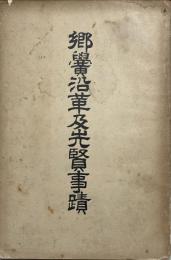 鄉黌沿革及先賢事蹟